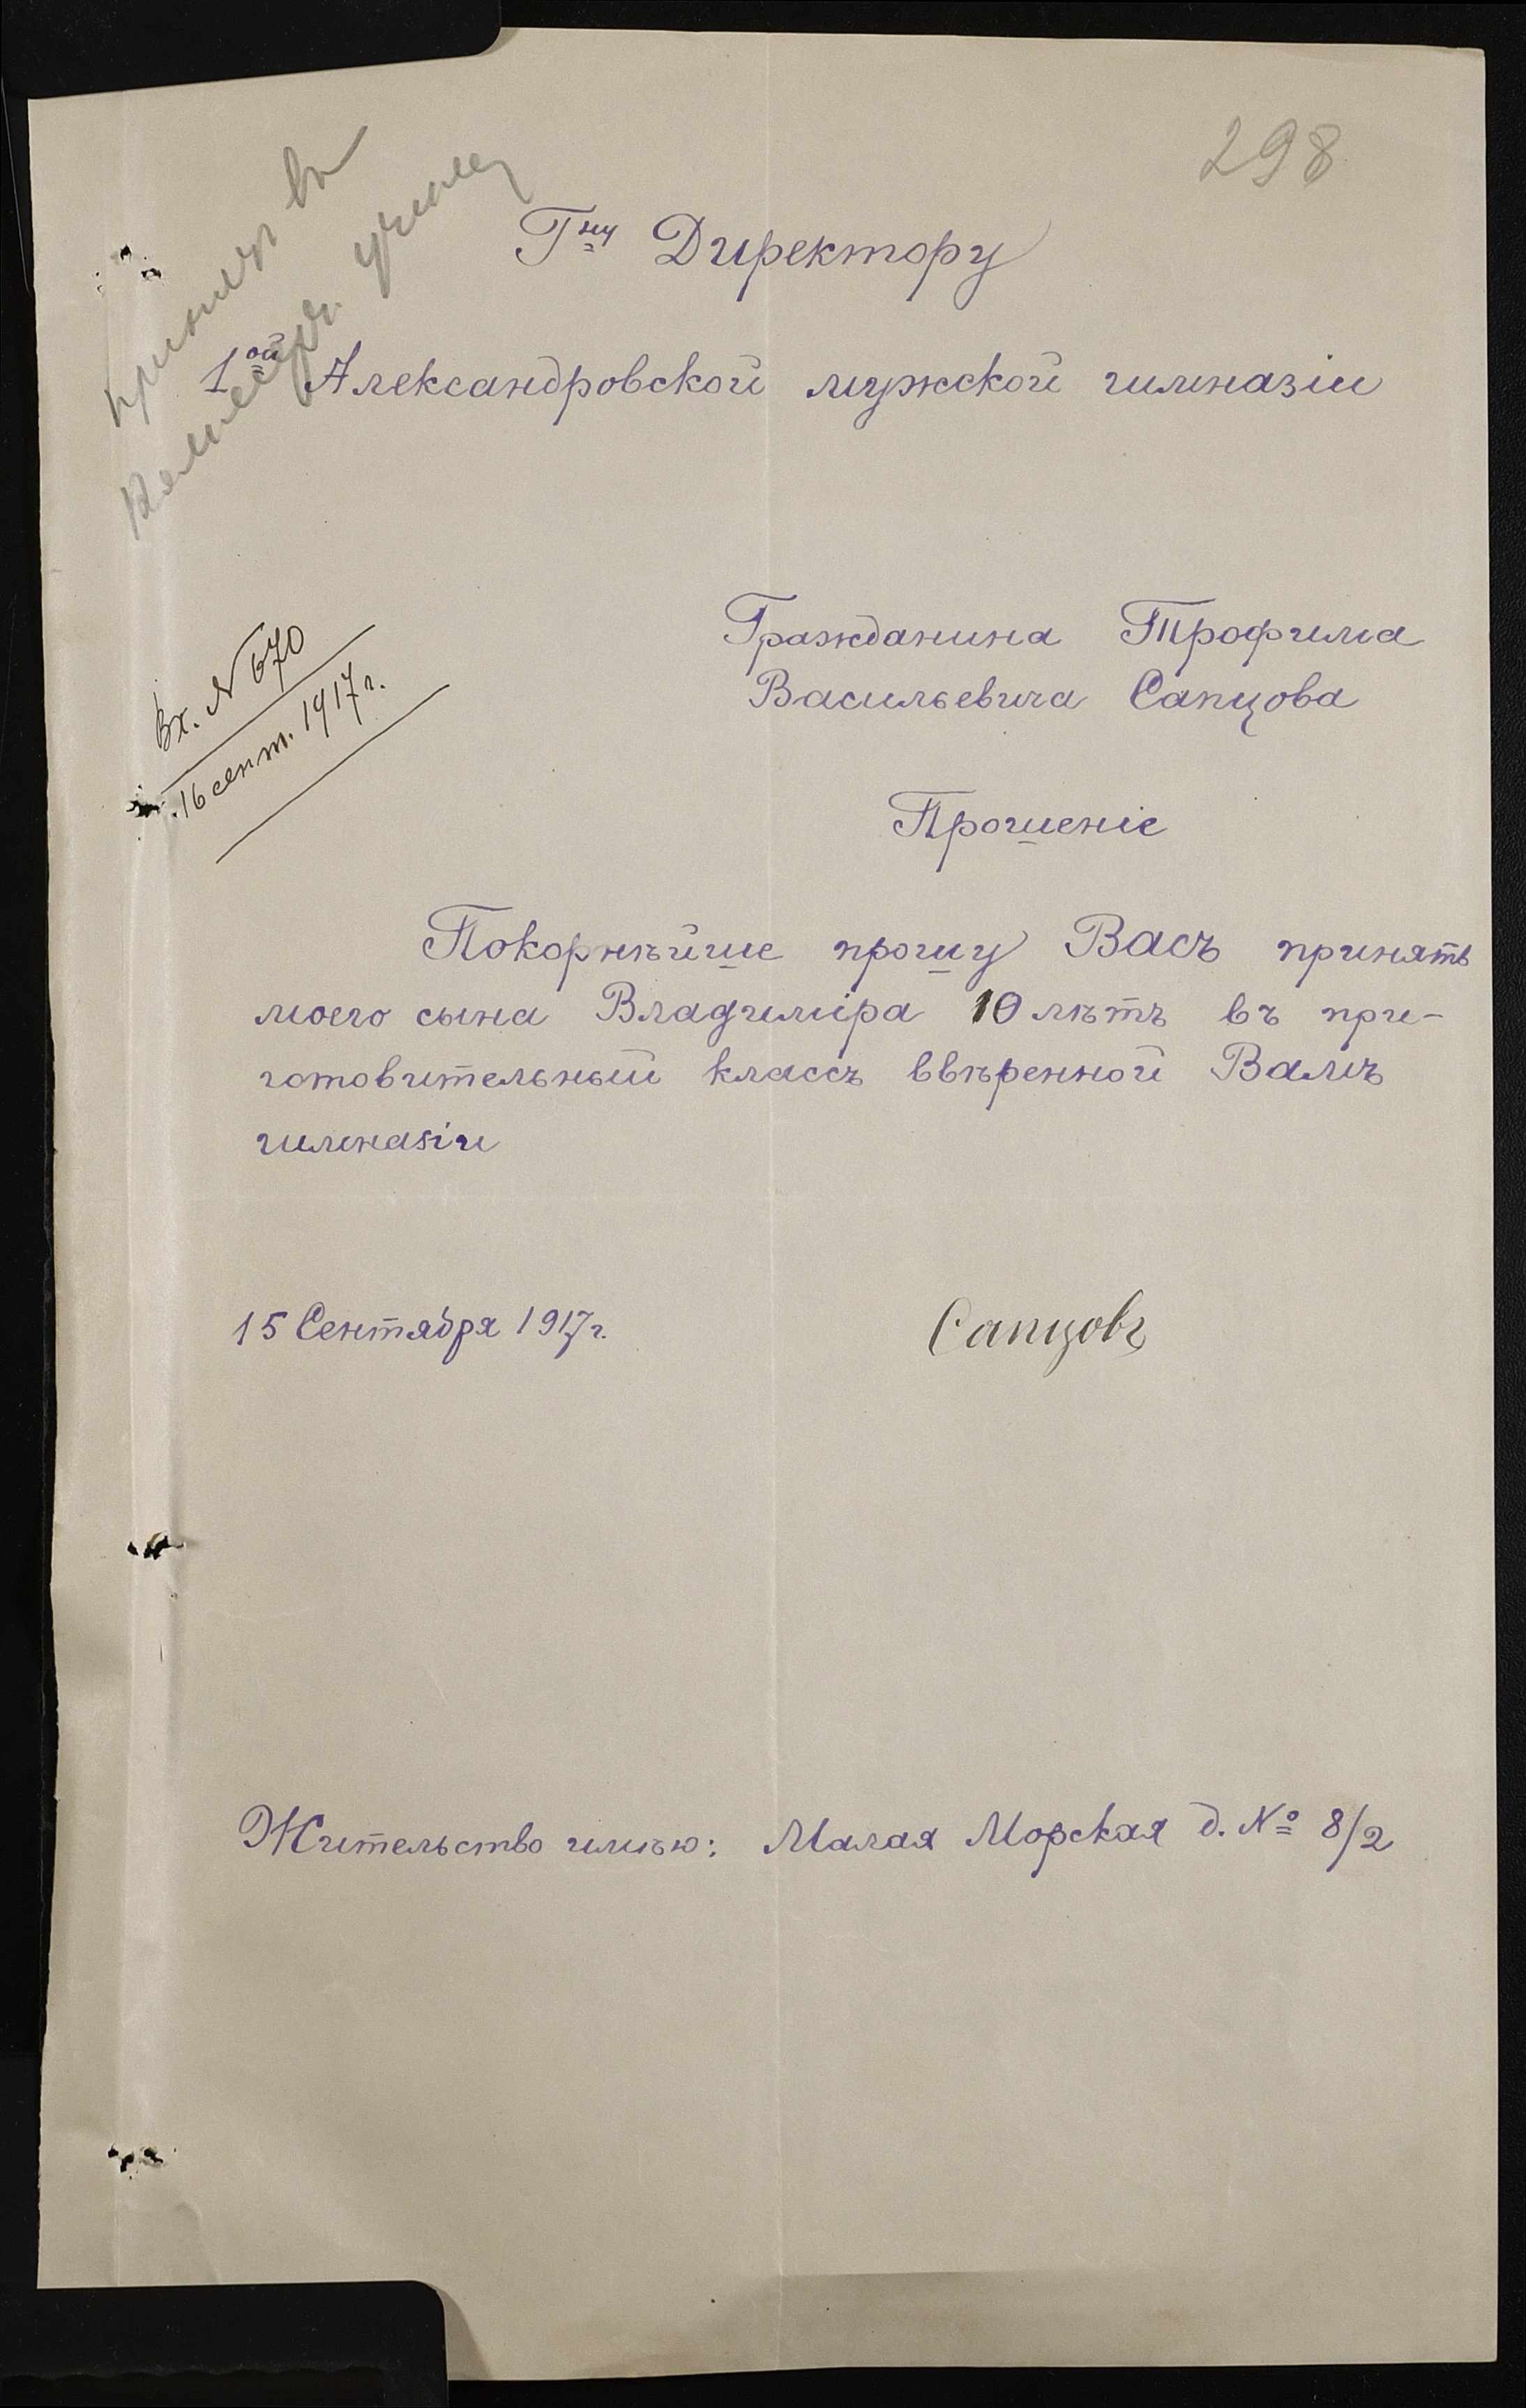 298
принятъ въ
коммерч. училищ
Г<sup>ну</sup> Директору
1<sup>ой</sup> Александровской мужской гимназіи
Вх. № 670
16 сент. 1917 г.
Гражданина Трофима
Васильевича Сапцова
Прошеніе
Покорнѣйше прошу Васъ принять
моего сына Владиміра 10 лѣтъ въ при-
готовительный классъ ввѣренной Вамъ
гимназіи
15 Сентября 1917 г.
Сапцовъ
Жительство имѣю: Малая Морская д. № 8/2